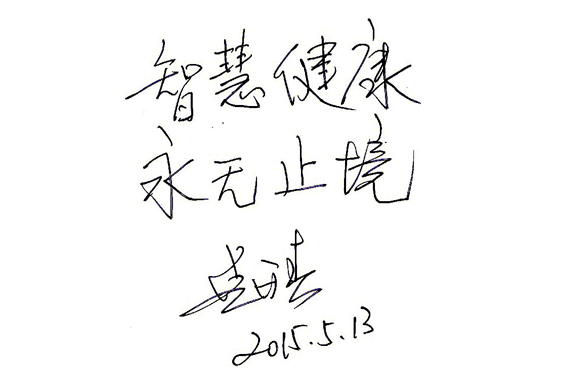 智慧健康
永无止境
2015.5.13